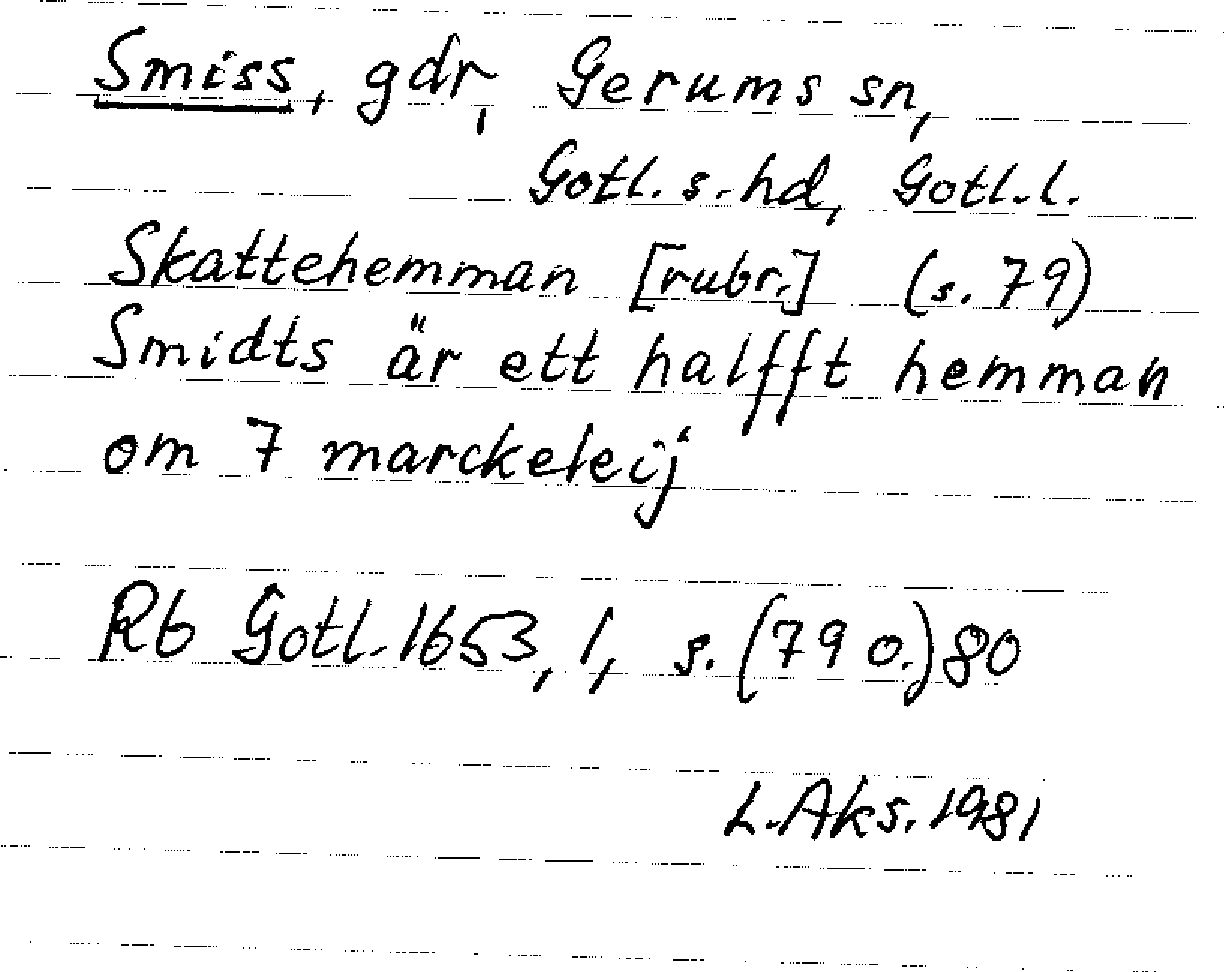 Smiss, gdr, Gerums sn,
Gotl. s. hd, Gotl. l.
Skattehemman [rubr.] (s. 79)
Smidts är ett halfft hemman
om 7 marckeleij
Rb Gotl. 1653, 1, s. (79 o.) 80
L. Aks. 1981